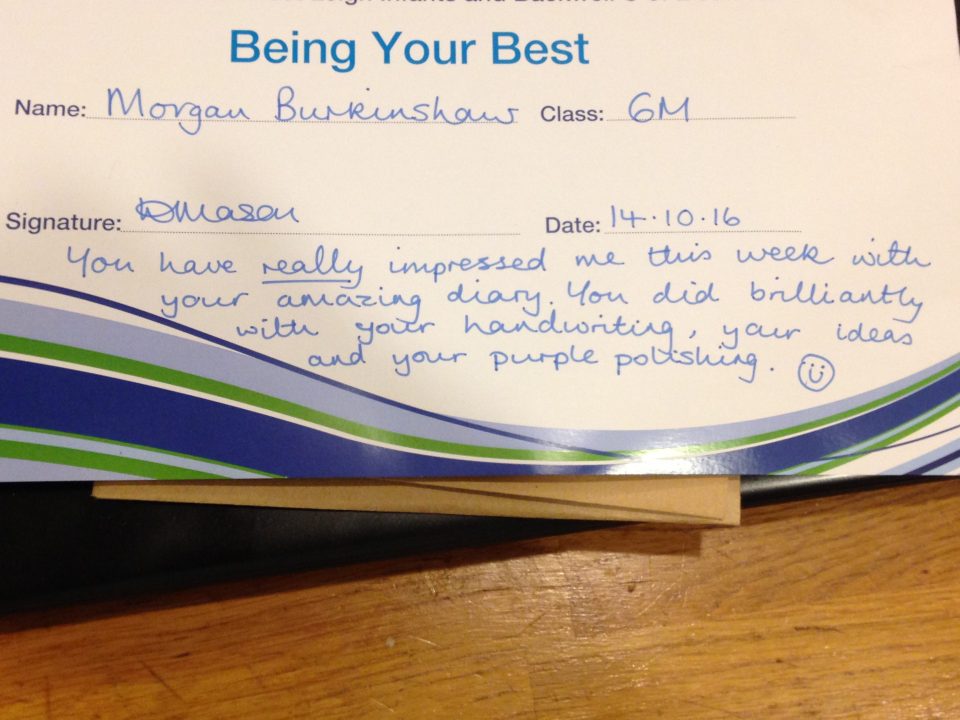 Infants and
Being Your Best
Name: Morgan Burkinshaw Class: 6M
Signature: DMason Date: 14.10.16
You have really impressed me this week with
your amazing diary. You did brilliantly
with your handwriting, your ideas
and your purple polishing.